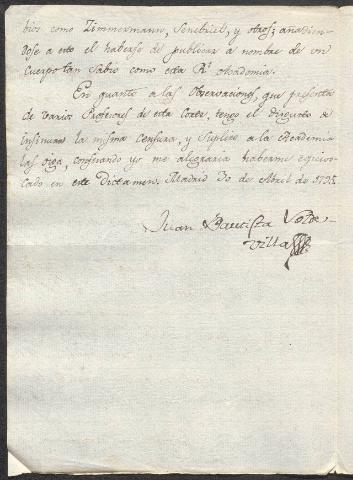 bios como Zimmermann, Senebriel, y otros; añadien-
dose a esto el haberse de publicar a nombre de un
cuerpo tan Sabio como esta Rl. Academia.
En quanto a las Observaciones, que presenta
de varios Profesores de esta Corte, tengo el disgusto de
insinuar la misma censura, y suplico a la Academia
las oiga, confesando yo me alegraria haberme equivo-
cado en este Dictamen. Madrid 30 de Abril de 1795.
Juan Bautista Valde
villa